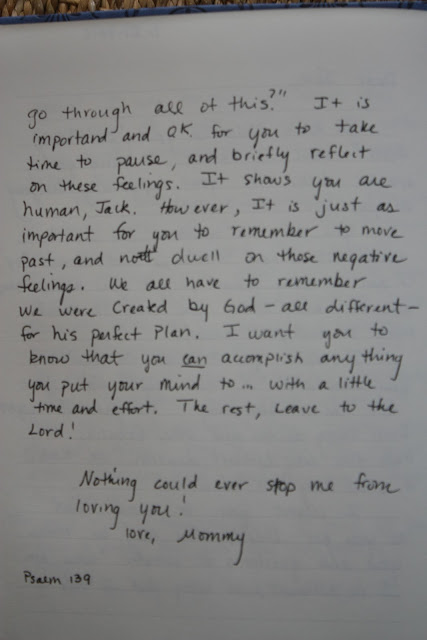 go through all of this?" It is
importand and OK for you to take
time to pause, and briefly reflect
on these feelings. It shows you are
human, Jack. However, It is just as
important for you to remember to move
past, and not dwell on those negative
feelings. We all have to remember
we were Created by God - all different -
for his perfect Plan. I want you to
know that you can accomplish anything
you put your mind to... with a little
time and effort. The rest, Leave to the
Lord!
Nothing could ever stop me from
loving you!
love, Mommy
Psalm 139